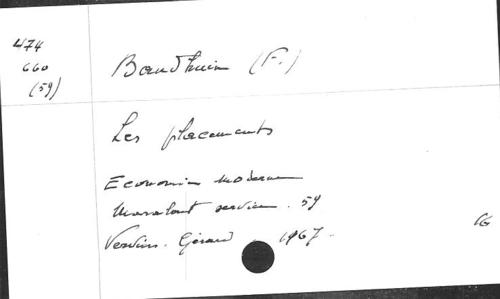 474
660
(59)
Baudhuin (F.)
Les placements
Economie moderne
Marabout service . 59
Verviers. Gérard . 1967.